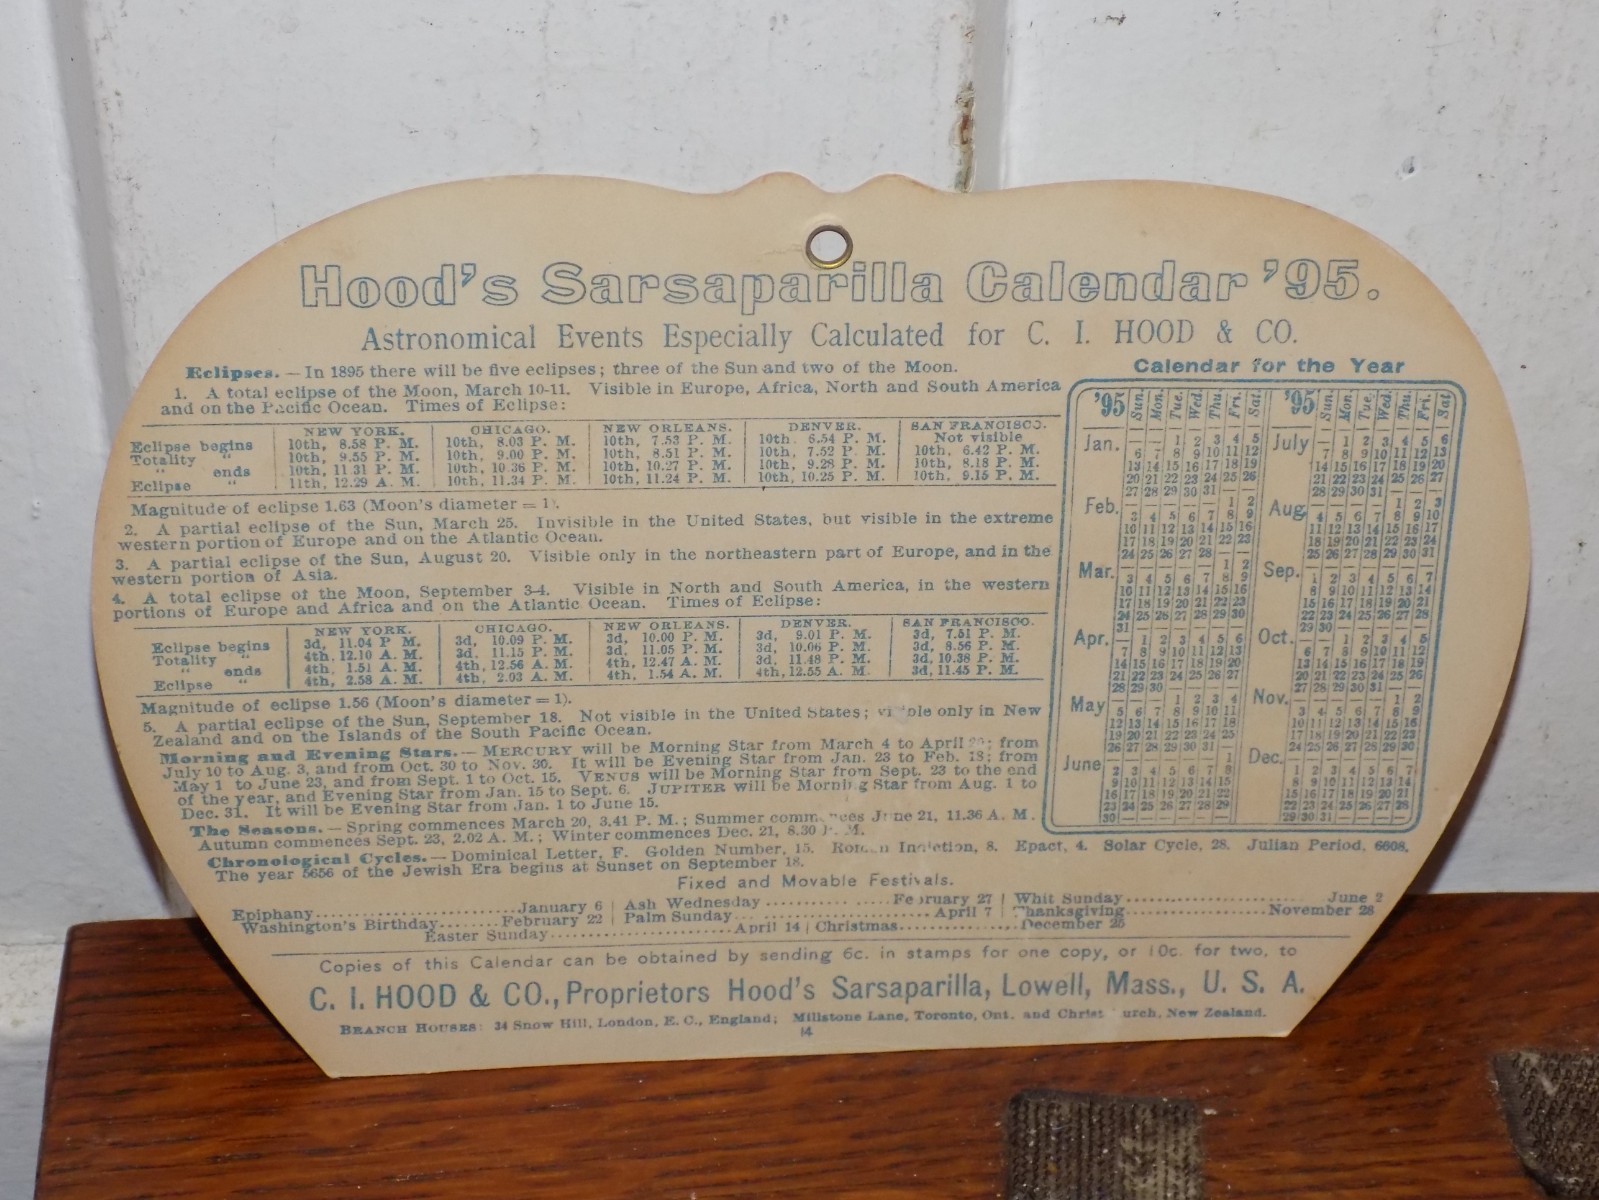 Hood's Sarsaparilla Calendar '95.
Astronomical Events Especially Calculated for C. I. HOOD & CO.
Eclipses. — In 1895 there will be five eclipses; three of the Sun and two of the Moon.
1. A total eclipse of the Moon, March 10-11. Visible in Europe, Africa, North and South America
and on the Pacific Ocean. Times of Eclipse:
NEW YORK. CHICAGO. NEW ORLEANS. DENVER. SAN FRANCISCO.
Eclipse begins 10th, 8.58 P. M. 10th, 8.03 P. M. 10th, 7.53 P. M. 10th, 6.54 P. M. Not visible
Totality " 10th, 9.55 P. M. 10th, 9.00 P. M. 10th, 8.51 P. M. 10th, 7.52 P. M. 10th, 6.42 P. M.
" ends 10th, 11.31 P. M. 10th, 10.36 P. M. 10th, 10.27 P. M. 10th, 9.28 P. M. 10th, 8.18 P. M.
Eclipse " 11th, 12.29 A. M. 10th, 11.34 P. M. 10th, 11.24 P. M. 10th, 10.25 P. M. 10th, 9.15 P. M.
Magnitude of eclipse 1.63 (Moon's diameter = 1).
2. A partial eclipse of the Sun, March 25. Invisible in the United States, but visible in the extreme
western portion of Europe and on the Atlantic Ocean.
3. A partial eclipse of the Sun, August 20. Visible only in the northeastern part of Europe, and in the
western portion of Asia.
4. A total eclipse of the Moon, September 3-4. Visible in North and South America, in the western
portions of Europe and Africa and on the Atlantic Ocean. Times of Eclipse:
NEW YORK. CHICAGO. NEW ORLEANS. DENVER. SAN FRANCISCO.
Eclipse begins 3d, 11.04 P. M. 3d, 10.09 P. M. 3d, 10.00 P. M. 3d, 9.01 P. M. 3d, 7.51 P. M.
Totality " 4th, 12.10 A. M. 3d, 11.15 P. M. 3d, 11.05 P. M. 3d, 10.06 P. M. 3d, 8.56 P. M.
" ends 4th, 1.51 A. M. 4th, 12.56 A. M. 4th, 12.47 A. M. 3d, 11.48 P. M. 3d, 10.38 P. M.
Eclipse " 4th, 2.58 A. M. 4th, 2.03 A. M. 4th, 1.54 A. M. 4th, 12.55 A. M. 3d, 11.45 P. M.
Magnitude of eclipse 1.56 (Moon's diameter = 1).
5. A partial eclipse of the Sun, September 18. Not visible in the United States; visible only in New
Zealand and on the Islands of the South Pacific Ocean.
Morning and Evening Stars. — MERCURY will be Morning Star from March 4 to April ; from
July 10 to Aug. 3, and from Oct. 30 to Nov. 30. It will be Evening Star from Jan. 23 to Feb. 18; from
May 1 to June 23, and from Sept. 1 to Oct. 15. VENUS will be Morning Star from Sept. 23 to the end
of the year, and Evening Star from Jan. 15 to Sept. 6. JUPITER will be Morning Star from Aug. 1 to
Dec. 31. It will be Evening Star from Jan. 1 to June 15.
The Seasons. — Spring commences March 20, 3.41 P. M.; Summer commences June 21, 11.36 A. M.
Autumn commences Sept. 23, 2.02 A. M.; Winter commences Dec. 21, 8.30 P. M.
Chronological Cycles. — Dominical Letter, F. Golden Number, 15. Roman Indiction, 8. Epact, 4. Solar Cycle, 28. Julian Period, 6608.
The year 5656 of the Jewish Era begins at Sunset on September 18.
Calendar for the Year
'95 Sun. Mon. Tue. Wed. Thu. Fri. Sat. '95 Sun. Mon. Tue. Wed. Thu. Fri. Sat
Jan. — — 1 2 3 4 5 July — 1 2 3 4 5 6
6 7 8 9 10 11 12 7 8 9 10 11 12 13
13 14 15 16 17 18 19 14 15 16 17 18 19 20
20 21 22 23 24 25 26 21 22 23 24 25 26 27
27 28 29 30 31 — — 28 29 30 31 — — —
Feb. — — — — — 1 2 Aug. — — — — 1 2 3
3 4 5 6 7 8 9 4 5 6 7 8 9 10
10 11 12 13 14 15 16 11 12 13 14 15 16 17
17 18 19 20 21 22 23 18 19 20 21 22 23 24
24 25 26 27 28 — — 25 26 27 28 29 30 31
Mar. — — — — — 1 2 Sep. 1 2 3 4 5 6 7
3 4 5 6 7 8 9 8 9 10 11 12 13 14
10 11 12 13 14 15 16 15 16 17 18 19 20 21
17 18 19 20 21 22 23 22 23 24 25 26 27 28
24 25 26 27 28 29 30 29 30 — — — — —
31 — — — — — —
Apr. — 1 2 3 4 5 6 Oct. — — 1 2 3 4 5
7 8 9 10 11 12 13 6 7 8 9 10 11 12
14 15 16 17 18 19 20 13 14 15 16 17 18 19
21 22 23 24 25 26 27 20 21 22 23 24 25 26
28 29 30 — — — — 27 28 29 30 31 — —
May — — — 1 2 3 4 Nov. — — — — — 1 2
5 6 7 8 9 10 11 3 4 5 6 7 8 9
12 13 14 15 16 17 18 10 11 12 13 14 15 16
19 20 21 22 23 24 25 17 18 19 20 21 22 23
26 27 28 29 30 31 — 24 25 26 27 28 29 30
June — — — — — — 1 Dec. — — — — — — —
2 3 4 5 6 7 8 1 2 3 4 5 6 7
9 10 11 12 13 14 15 8 9 10 11 12 13 14
16 17 18 19 20 21 22 15 16 17 18 19 20 21
23 24 25 26 27 28 29 22 23 24 25 26 27 28
30 — — — — — — 29 30 31 — — — —
Fixed and Movable Festivals.
Epiphany January 6 | Ash Wednesday February 27 | Whit Sunday June 2
Washington's Birthday February 22 | Palm Sunday April 7 | Thanksgiving November 28
Easter Sunday April 14 | Christmas December 25
Copies of this Calendar can be obtained by sending 6c. in stamps for one copy, or 10c. for two, to
C. I. HOOD & CO., Proprietors Hood's Sarsaparilla, Lowell, Mass., U. S. A.
BRANCH HOUSES: 34 Snow Hill, London, E. C., England; Millstone Lane, Toronto, Ont. and Christ urch, New Zealand.
14